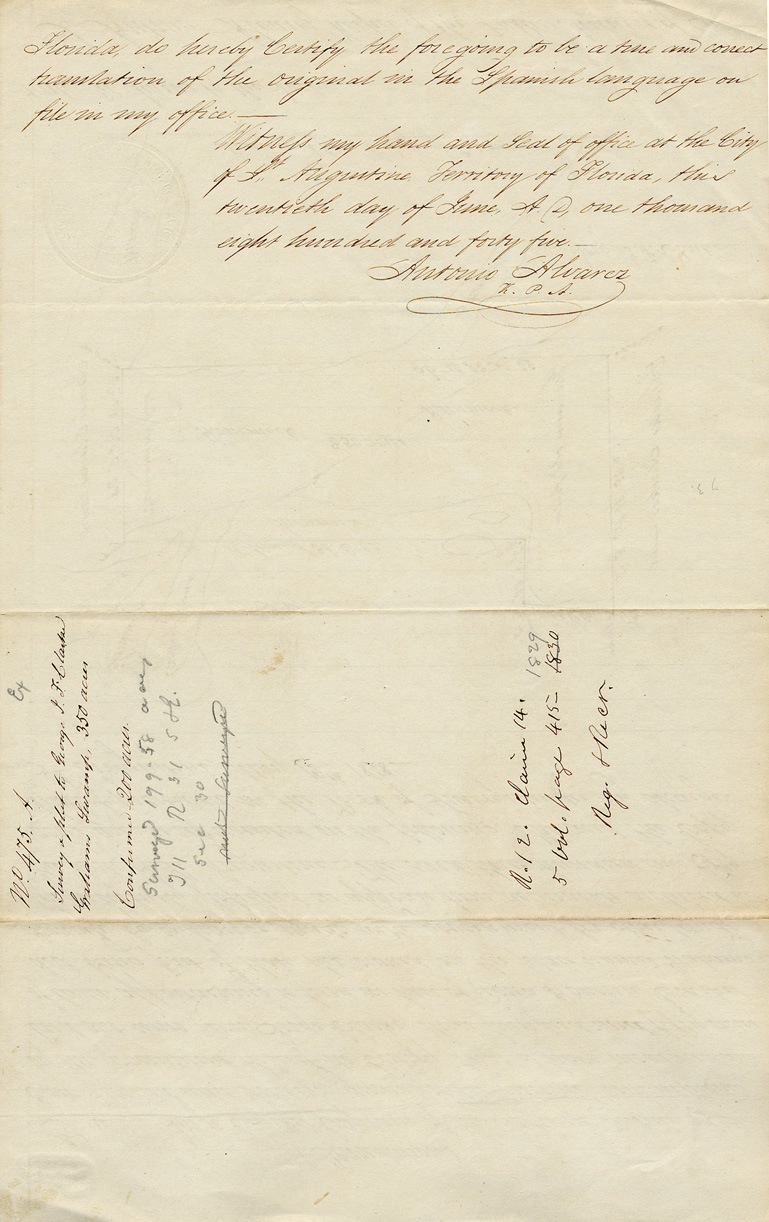 Florida, do hereby Certify the foregoing to be a true and correct
translation of the original in the Spanish language on
file in my office.—
Witness my hand and Seal of office at the City
of St. Augustine, Territory of Florida, this
twentieth day of June, A. D, one thousand
eight hundred and forty five.—
Antonio Alvarez
K. P. A.
No. 475. A. Ex
Survey & plat to George J. F. Clarke
Grahams Swamp, 350 acres
Confirmed 200 acres.
Surveyed 199-58 acres
T 11 R 31 S & E.
Sec 30
not surveyed
R. 12. Claim 14. 1829
5 vol. page 415- 1830
Reg. & Recr.